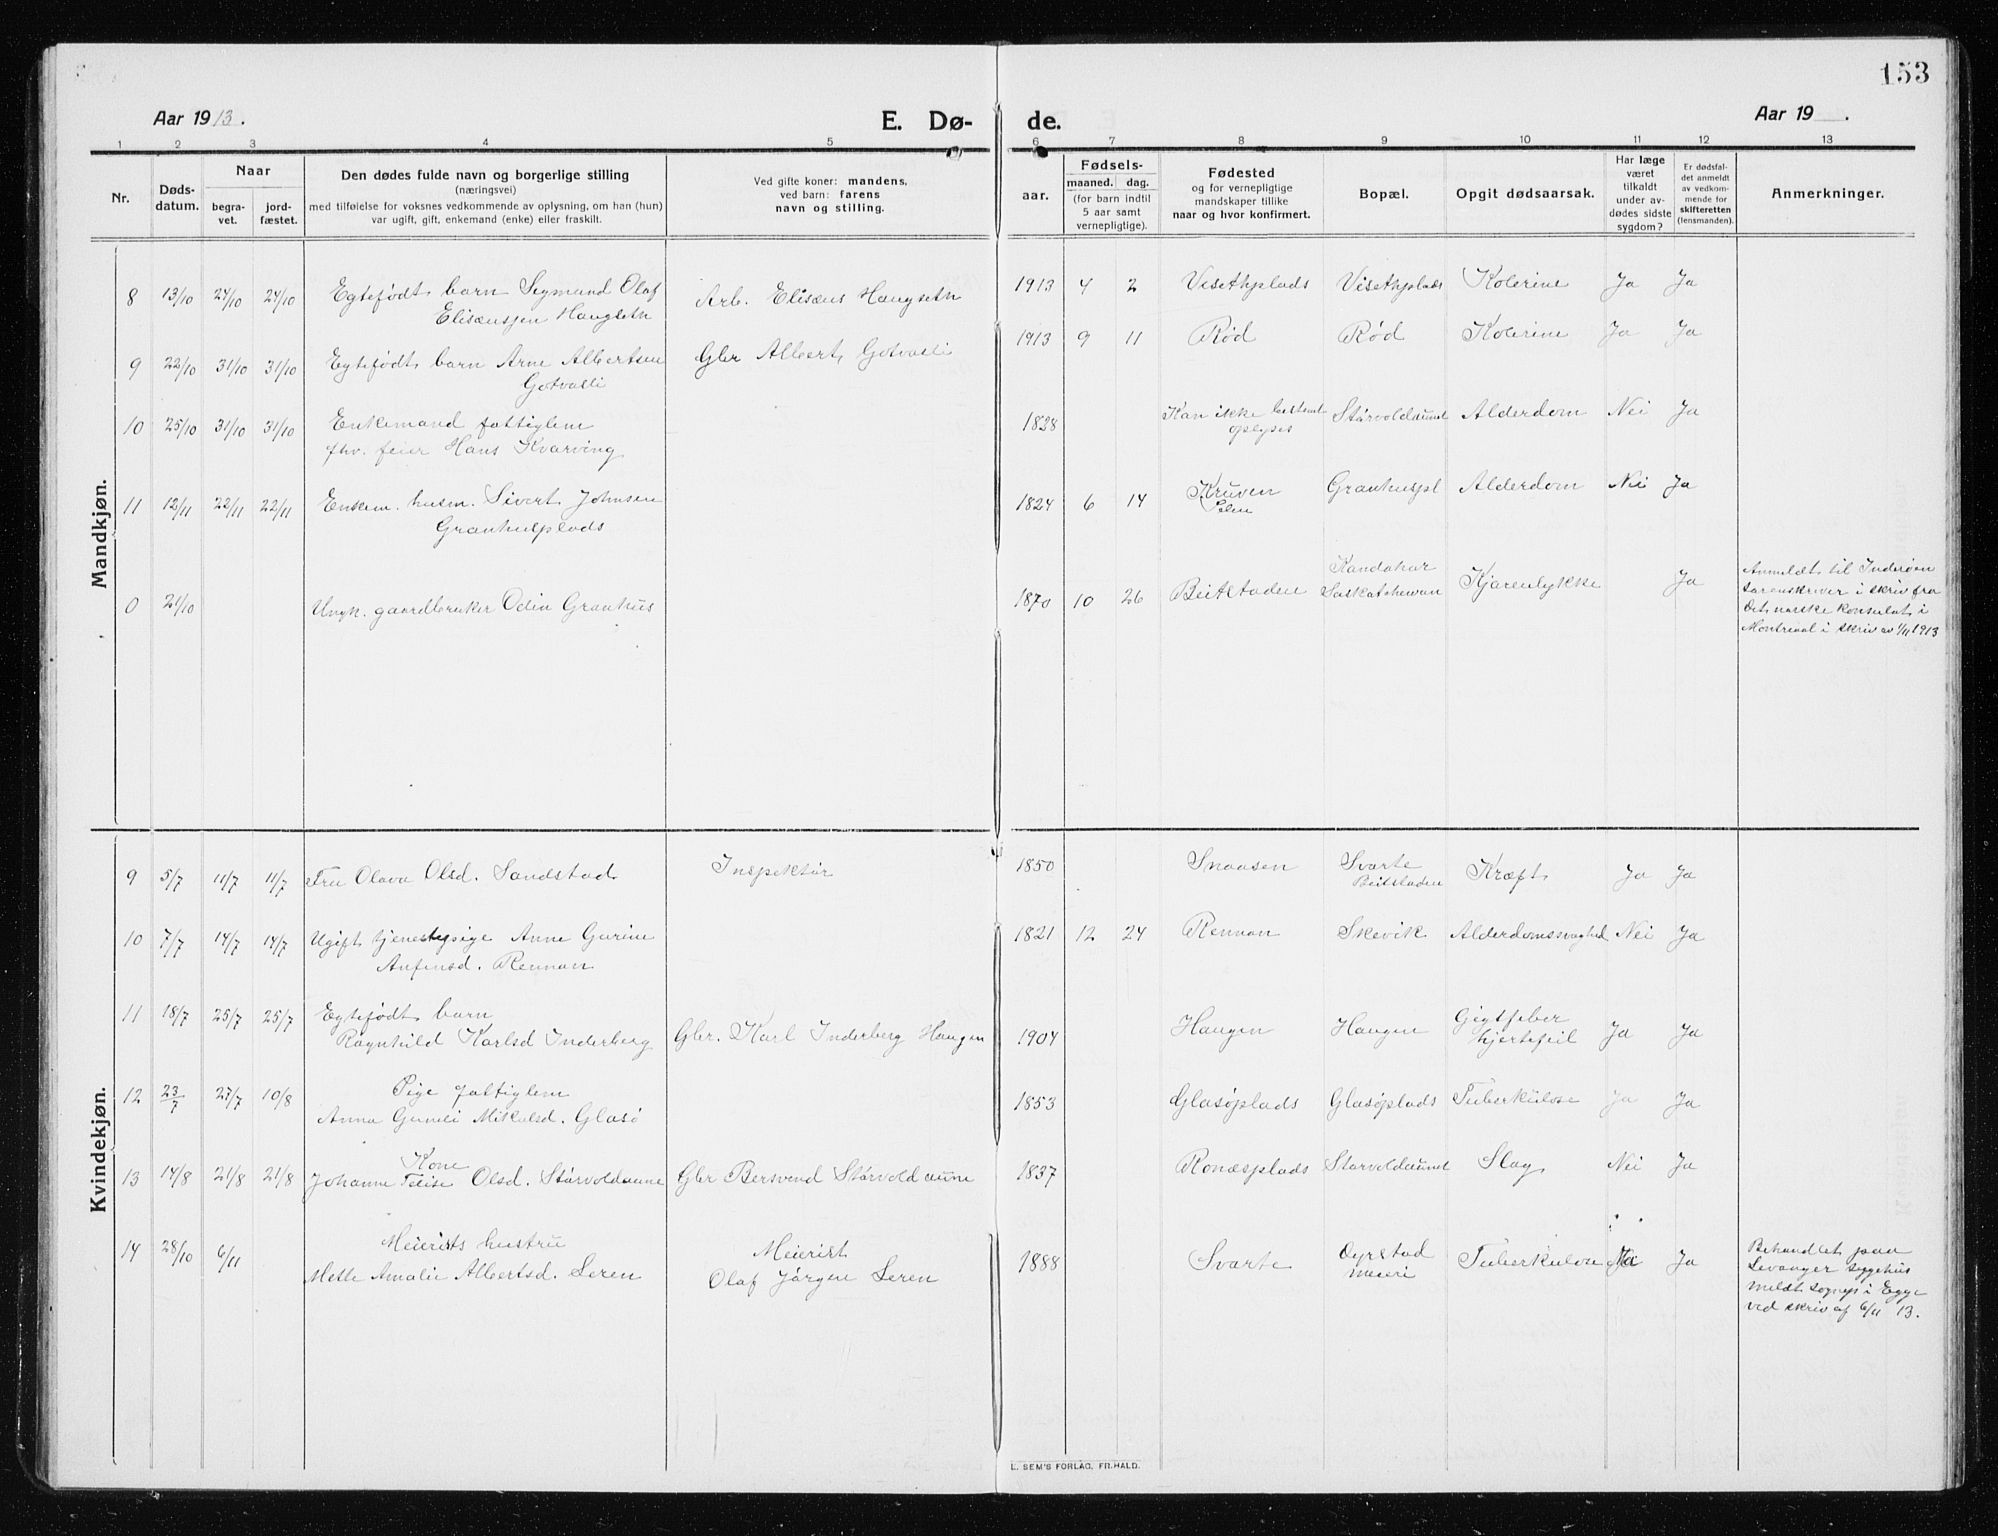 153
Aar 1913.
E. Dø-
de.
Aar 19 .
1 2 3 4 5 6 7 8 9 10 11 12 13
Nr.
Døds-
datum.
Naar
begra-
vet.
jord-
fæstet.
Den dødes fulde navn og borgerlige stilling
(næringsvei)
med tilføielse for voksnes vedkommende av oplysning, om han (hun)
var ugift, gift, enkemand (enke) eller fraskilt.
Ved gifte koner: mandens,
ved barn: farens
navn og stilling.
Fødsels-
aar.
maaned. dag.
(for barn indtil
5 aar samt
vernepligtige).
Fødested
og for vernepligtige
mandskaper tillike
naar og hvor konfirmert.
Bopæl.
Opgit dødsaarsak.
Har læge
været
tilkaldt
under av-
dødes sidste
sygdom?
Er dødsfal-
det anmeldt
av vedkom-
mende for
skifteretten
(lensmanden).
Anmerkninger.
Mandkjøn.
8 13/10 24/10 24/10 Egtefødt barn Sigmund Olaf
Elisæussen Haugseth
Arb. Elisæus Haugseth 1913 4 2 Visethplads Visethplads Kolerine Ja Ja
9 22/10 31/10 31/10 Egtefødt barn Arne Albertsen
Gotvasli
Gbr Albert Gotvasli 1913 9 11 Rød Rød Kolerine Ja Ja
10 25/10 31/10 31/10 Enkemand fattiglem
fhv. feier Hans Kvarving
1828 Kan ikke bestemt
oplyses
Størvoldaunet Alderdom Nei Ja
11 12/11 22/11 22/11 Enkem. husm. Sivert Johnsen
Granhusplads
1824 6 14 Kruven
Granhuspl Alderdom Nei Ja
0 21/10 Ungk. gaardbruker Odin Granhus 1870 10 26 Beitstaden
Kandahar
Saskatchewan
Hjerteulykke Ja
Anmeldt til Inderøen
sorenskriver i skriv fra
Det norske konsulat i
Montreal i skriv av 1/11 1913
Kvindekjøn.
9 5/7 11/7 11/7 Fru Olava Olsd. Sandstad Inspektør 1850 Snaasen Svarte
Beitstaden
Kræft Ja Ja
10 7/7 14/7 14/7 Ugift tjenestepige Anne Gurine
Anfinsd. Rennan
1821 12 24 Rennan Skevik Alderdomssvaghed Nei Ja
11 18/7 25/7 25/7 Egtefødt barn
Ragnhild Karlsd Inderberg
Gbr. Karl Inderberg Haugen 1904 Haugen Haugen Gigtfeber
hjertefeil
Ja Ja
12 23/7 27/7 10/8 Pige fattiglem
Anna Gunli Mikalsd. Glasø
1853 Glasøplads Glasøplads Tuberkulose Ja Ja
13 14/8 21/8 21/8 Kone
Johanne Olsd. Størvoldaune
Gbr Bersvend Størvoldaune 1837 Ronæsplads Størvoldaunet Slag Nei Ja
14 28/10 6/11 Meierists hustru
Mette Amalie Albertsd. Leren
Meierist
Olaf Jørgen Leren
1888 Svarte Oyrstad
meieri
Tuberkulose Ja Ja
Behandlet paa
Levanger sygehus
meldt sognep i Egge
ved skriv af 6/11 13.
L. SEM'S FORLAG, FR.HALD.